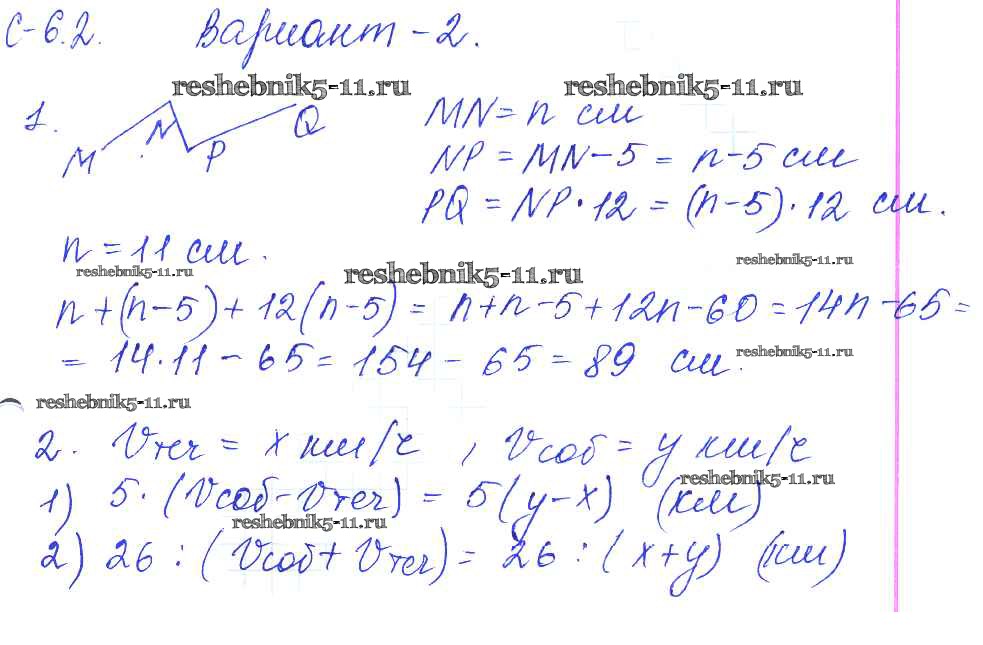 С-6.2. Вариант-2.
reshebnik5-11.ru reshebnik5-11.ru
1. M N P Q MN = n см
NP = MN-5 = n-5 см
PQ = NP·12 = (n-5)·12 см.
n = 11 см.
reshebnik5-11.ru reshebnik5-11.ru reshebnik5-11.ru
n+(n-5)+12(n-5) = n+n-5+12n-60 = 14n-65 =
= 14·11-65 = 154-65 = 89 см.
reshebnik5-11.ru
reshebnik5-11.ru
2. Vтеч = x км/ч, Vсоб = y км/ч
reshebnik5-11.ru
1) 5·(Vсоб-Vтеч) = 5(y-x) (км)
reshebnik5-11.ru
2) 26:(Vсоб+Vтеч) = 26:(x+y) (км)